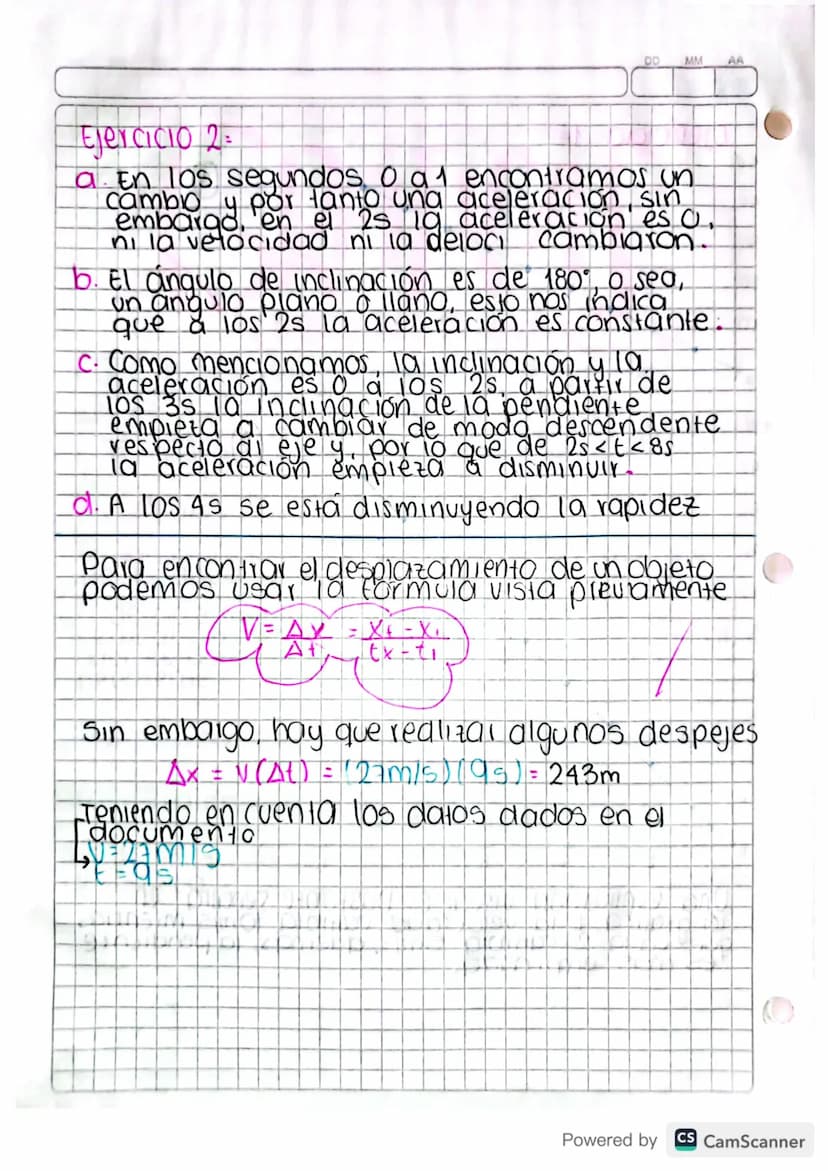 DD MM AA
Ejercicio 2:
a. En los segundos 0 a 1 encontramos un
cambio y por tanto una aceleración, sin
embargo, en el 2s la aceleración es 0,
ni la velocidad ni la deloci cambiaron.
b. El ángulo de inclinación es de 180°, o sea,
un ángulo plano o llano, esto nos indica
que a los 2s la aceleración es constante.
c. Como mencionamos, la inclinación y la
aceleración es 0 a los 2s, a partir de
los 3s la inclinación de la pendiente
empieza a cambiar de modo descendente
respecto al eje y, por lo que de 2s<t<8s
la aceleración empieza a disminuir.
d. A los 4s se está disminuyendo la rapidez
Para encontrar el desplazamiento de un objeto
podemos usar la fórmula vista previamente
V = Δx / Δt = xf - xi / tx - ti
Sin embargo, hay que realizar algunos despejes
Δx = V (Δt) = (27m/s)(9s) = 243m
Teniendo en cuenta los datos dados en el
documento
V=27m/s
t=9s
Powered by CS CamScanner